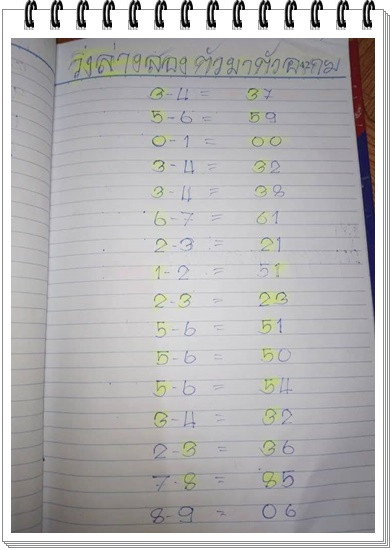 วิ่งล่างสองตัวมาตัวคะกาม
3-4 = 37
5-6 = 59
0-1 = 00
3-4 = 32
3-4 = 38
6-7 = 61
2-3 = 21
1-2 = 51
2-3 = 23
5-6 = 51
5-6 = 50
5-6 = 54
3-4 = 32
2-3 = 36
7-8 = 85
8-9 = 06